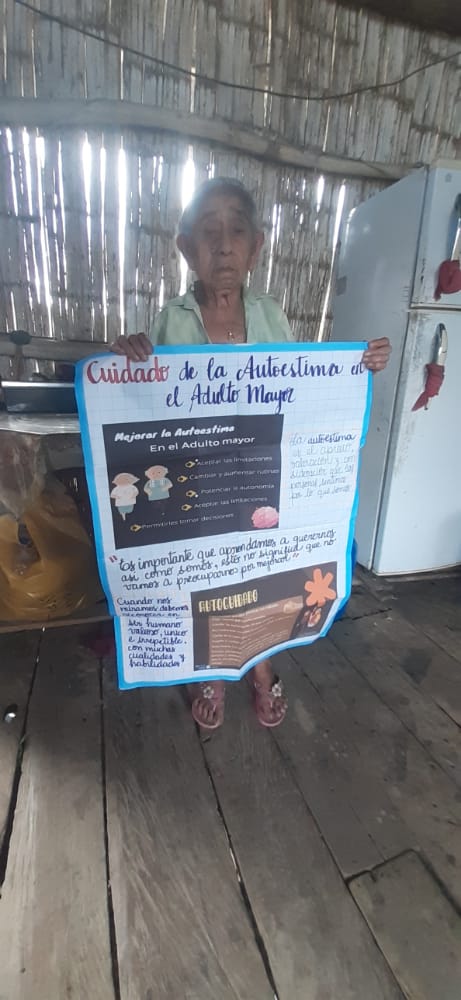 Cuidado de la Autoestima en
el Adulto Mayor
Mejorar la Autoestima
En el Adulto mayor
Aceptar las limitaciones
Cambiar y aumentar rutinas
Potenciar la autonomía
Aceptar las limitaciones
Permitirles tomar decisiones
La autoestima
es el aprecio,
valoración y con
sideración que las
personas
por lo que somos
importante que aprendamos a querernos
así como somos, esto no significa que no
vamos a preocuparnos por mejorar"
Cuando nos
miramos debemos
en
ser humano
valioso, unico
e irrepetible,
con muchas
cualidades y
habilidades
AUTOCUIDADO